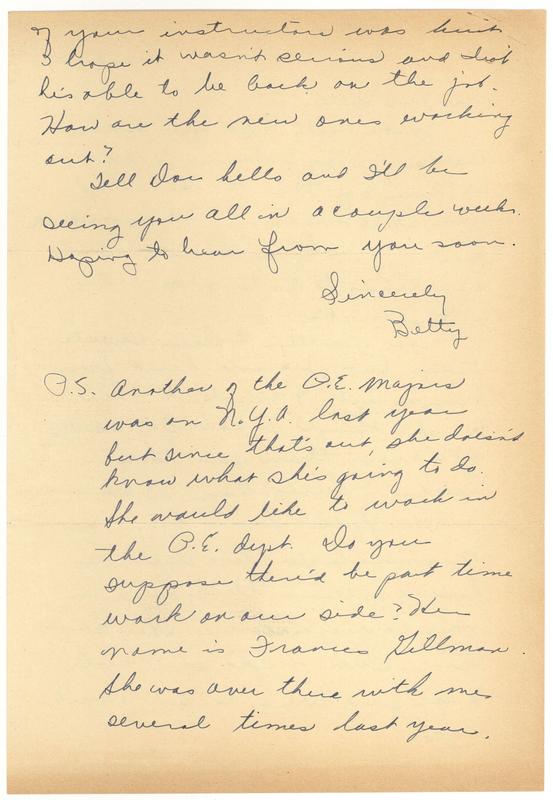 of your instructors was hurt
I hope it wasn't serious and that
he's able to be back on the job.
How are the new ones working
out?
Tell Don hello and I'll be
seeing you all in a couple weeks.
Hoping to hear from you soon.
Sincerely
Betty
P.S. Another of the P.E. majors
was on N.Y.A. last year
but since that's out, she doesn't
know what she's going to do.
She would like to work in
the P.E. dept. Do you
suppose there'd be part time
work on our side? Her
name is Frances Gillman.
She was over there with me
several times last year.